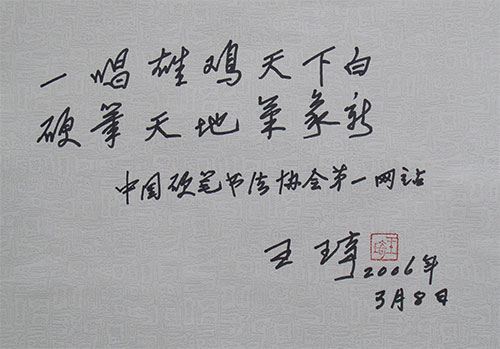 一唱雄鸡天下白
硬筆天地氣象新
中国硬笔书法协会第一网站
王
2006年
3月8日